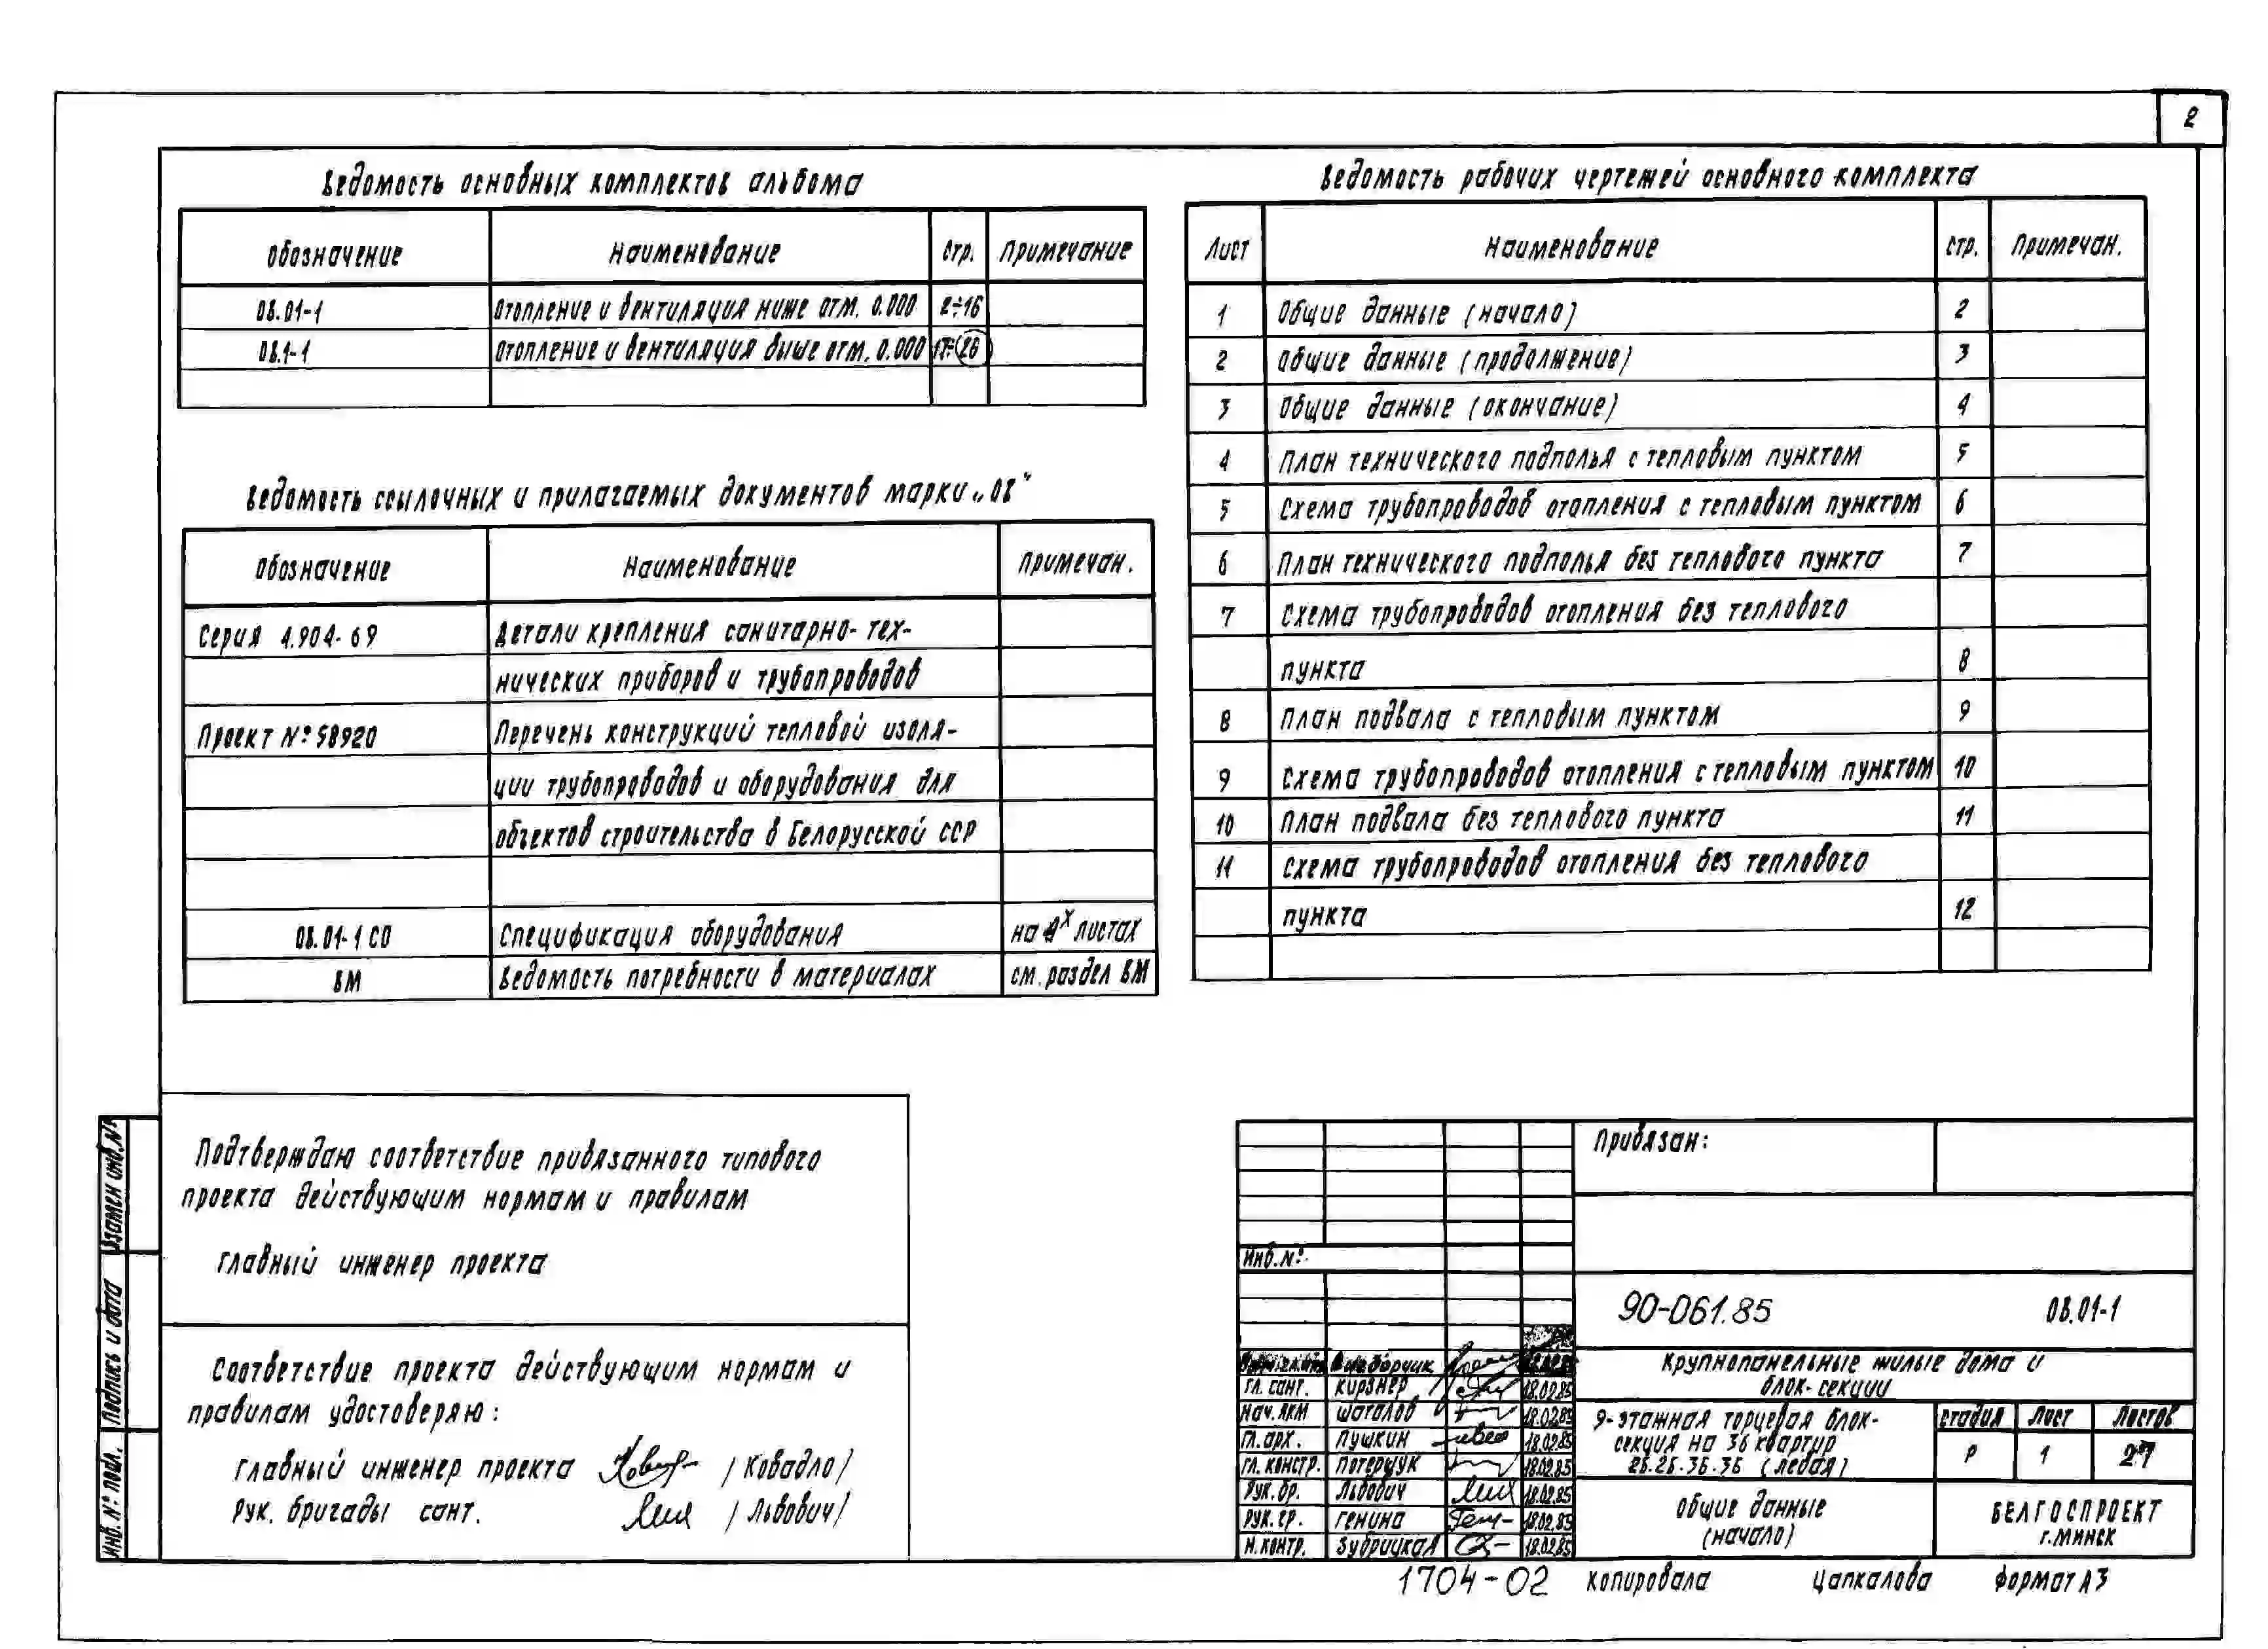 2
Ведомость основных комплектов альбома
Обозначение Наименование Стр. Примечание
ОВ.01-1 Отопление и вентиляция ниже отм. 0.000 2÷16
ОВ.1-1 Отопление и вентиляция выше отм. 0.000 17÷26
Ведомость ссылочных и прилагаемых документов марки „ОВ“
Обозначение Наименование Примечан.
Серия 4.904-69 Детали крепления санитарно-тех-
нических приборов и трубопроводов
Проект № 58920 Перечень конструкций тепловой изоля-
ции трубопроводов и оборудования для
объектов строительства в Белорусской ССР
ОВ.01-1 СО Спецификация оборудования на листах
ВМ Ведомость потребности в материалах см. раздел ВМ
Ведомость рабочих чертежей основного комплекта
Лист Наименование стр. Примечан.
1 Общие данные (начало) 2
2 Общие данные (продолжение) 3
3 Общие данные (окончание) 4
4 План технического подполья с тепловым пунктом 5
5 Схема трубопроводов отопления с тепловым пунктом 6
6 План технического подполья без теплового пункта 7
7 Схема трубопроводов отопления без теплового
пункта 8
8 План подвала с тепловым пунктом 9
9 Схема трубопроводов отопления с тепловым пунктом 10
10 План подвала без теплового пункта 11
11 Схема трубопроводов отопления без теплового
пункта 12
Подтверждаю соответствие привязанного типового
проекта действующим нормам и правилам
Главный инженер проекта
Соответствие проекта действующим нормам и
правилам удостоверяю:
Главный инженер проекта /Ковадло/
Рук. бригады сант. /Львович/
Взамен инв. №
Подпись и дата
Инв. № подл.
Привязан:
Инв. №:
90-061.85 ОВ.01-1
Крупнопанельные жилые дома и
блок-секции
Гл. сант. Кирзнер 18.02.85
Нач. АКМ Шагалов 18.02.85
Гл. арх. Пушкин 18.02.85
Гл. констр. Потерщук 18.02.85
Рук. бр. Львович 18.02.85
Рук. гр. Генина 18.02.85
Н. контр. Зубрицкая 18.02.85
9-этажная торцевая блок-
секция на 36 квартир
2Б.2Б.3Б.3Б (левая)
Стадия Лист Листов
Р 1
Общие данные
(начало)
БЕЛГОСПРОЕКТ
г. Минск
1704-02 Копировала Цапкалова Формат А3